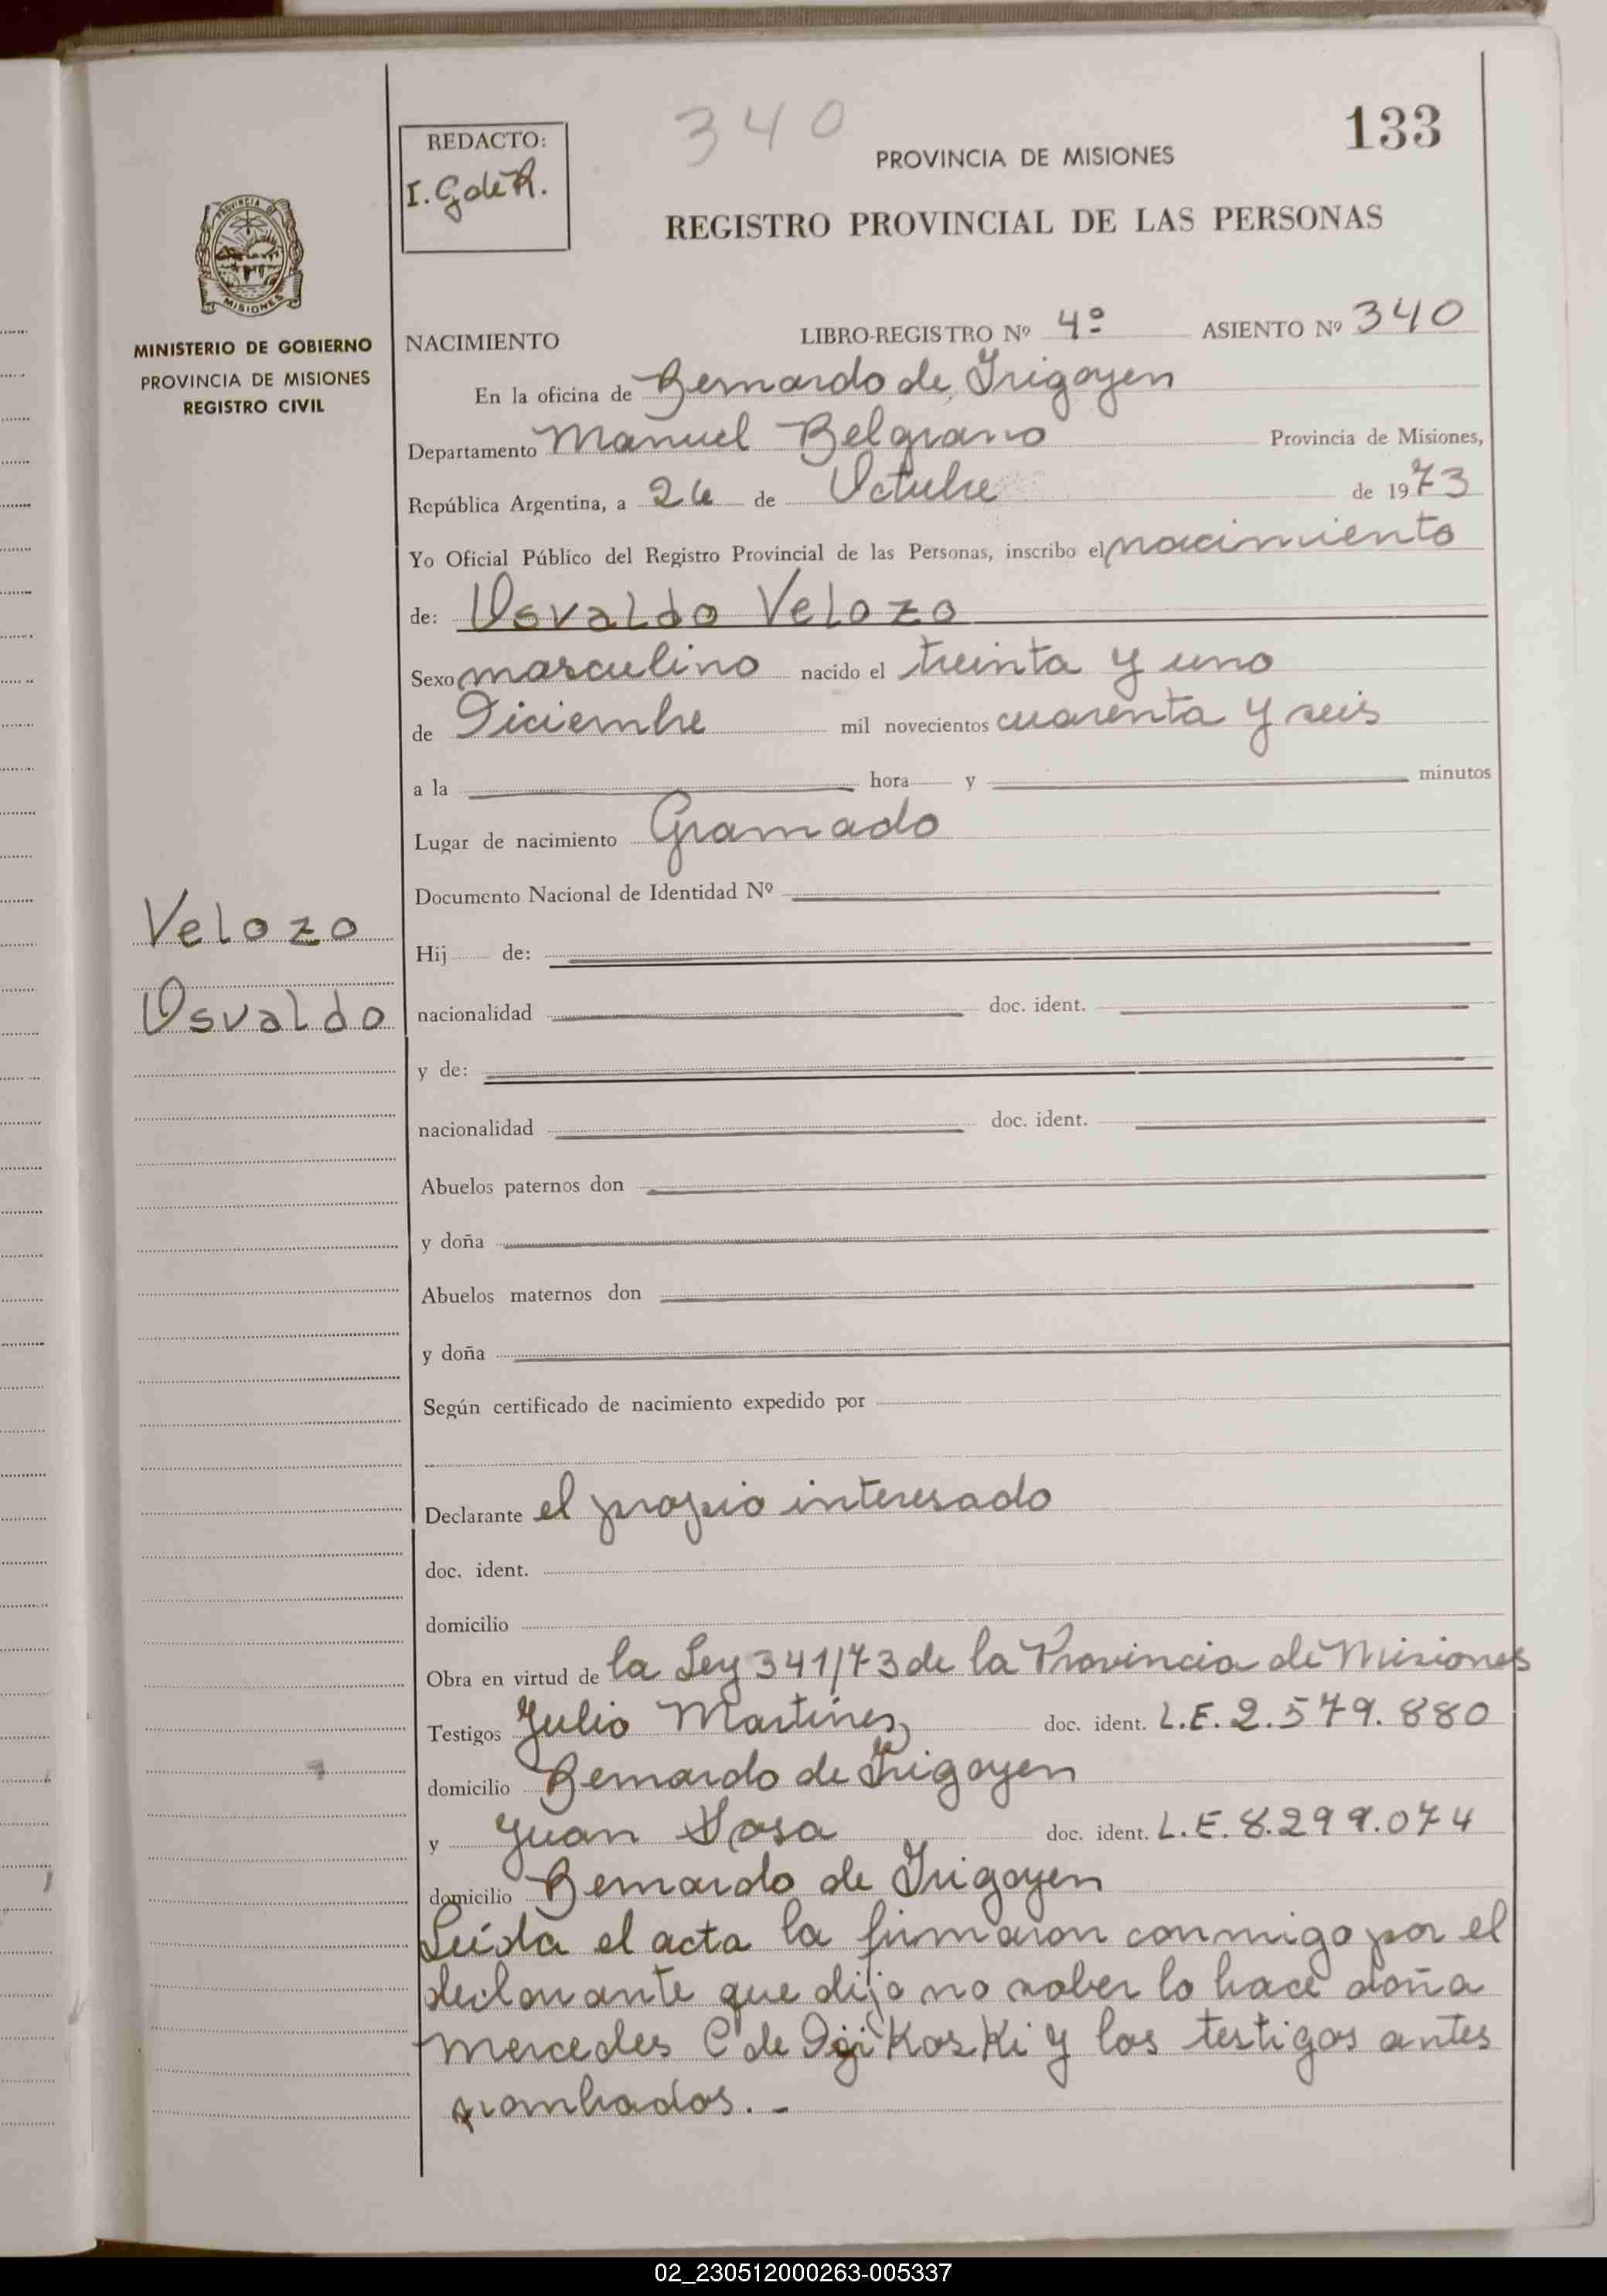 340
133
REDACTO:
I. G de R.
PROVINCIA DE MISIONES
REGISTRO PROVINCIAL DE LAS PERSONAS
PROVINCIA DE
MISIONES
MINISTERIO DE GOBIERNO
PROVINCIA DE MISIONES
REGISTRO CIVIL
NACIMIENTO LIBRO-REGISTRO Nº 4º ASIENTO Nº 340
En la oficina de Bernardo de Irigoyen
Departamento Manuel Belgrano Provincia de Misiones,
República Argentina, a 26 de Octubre de 1973
Yo Oficial Público del Registro Provincial de las Personas, inscribo el nacimiento
de: Osvaldo Velozo
Sexo masculino nacido el treinta y uno
de Diciembre mil novecientos cuarenta y seis
a la hora y minutos
Lugar de nacimiento Gramado
Documento Nacional de Identidad Nº
Velozo
Hij de:
Osvaldo
nacionalidad doc. ident.
y de:
nacionalidad doc. ident.
Abuelos paternos don
y doña
Abuelos maternos don
y doña
Según certificado de nacimiento expedido por
Declarante el propio interesado
doc. ident.
domicilio
Obra en virtud de la Ley 341/73 de la Provincia de Misiones
Testigos Julio Martinez doc. ident. L.E. 2.579.880
domicilio Bernardo de Irigoyen
y Juan Sosa doc. ident. L.E. 8.299.074
domicilio Bernardo de Irigoyen
Leída el acta la firmaron conmigo por el
declarante que dijo no saber lo hace doña
Mercedes C de y los testigos antes
nombrados. -
02_230512000263-005337